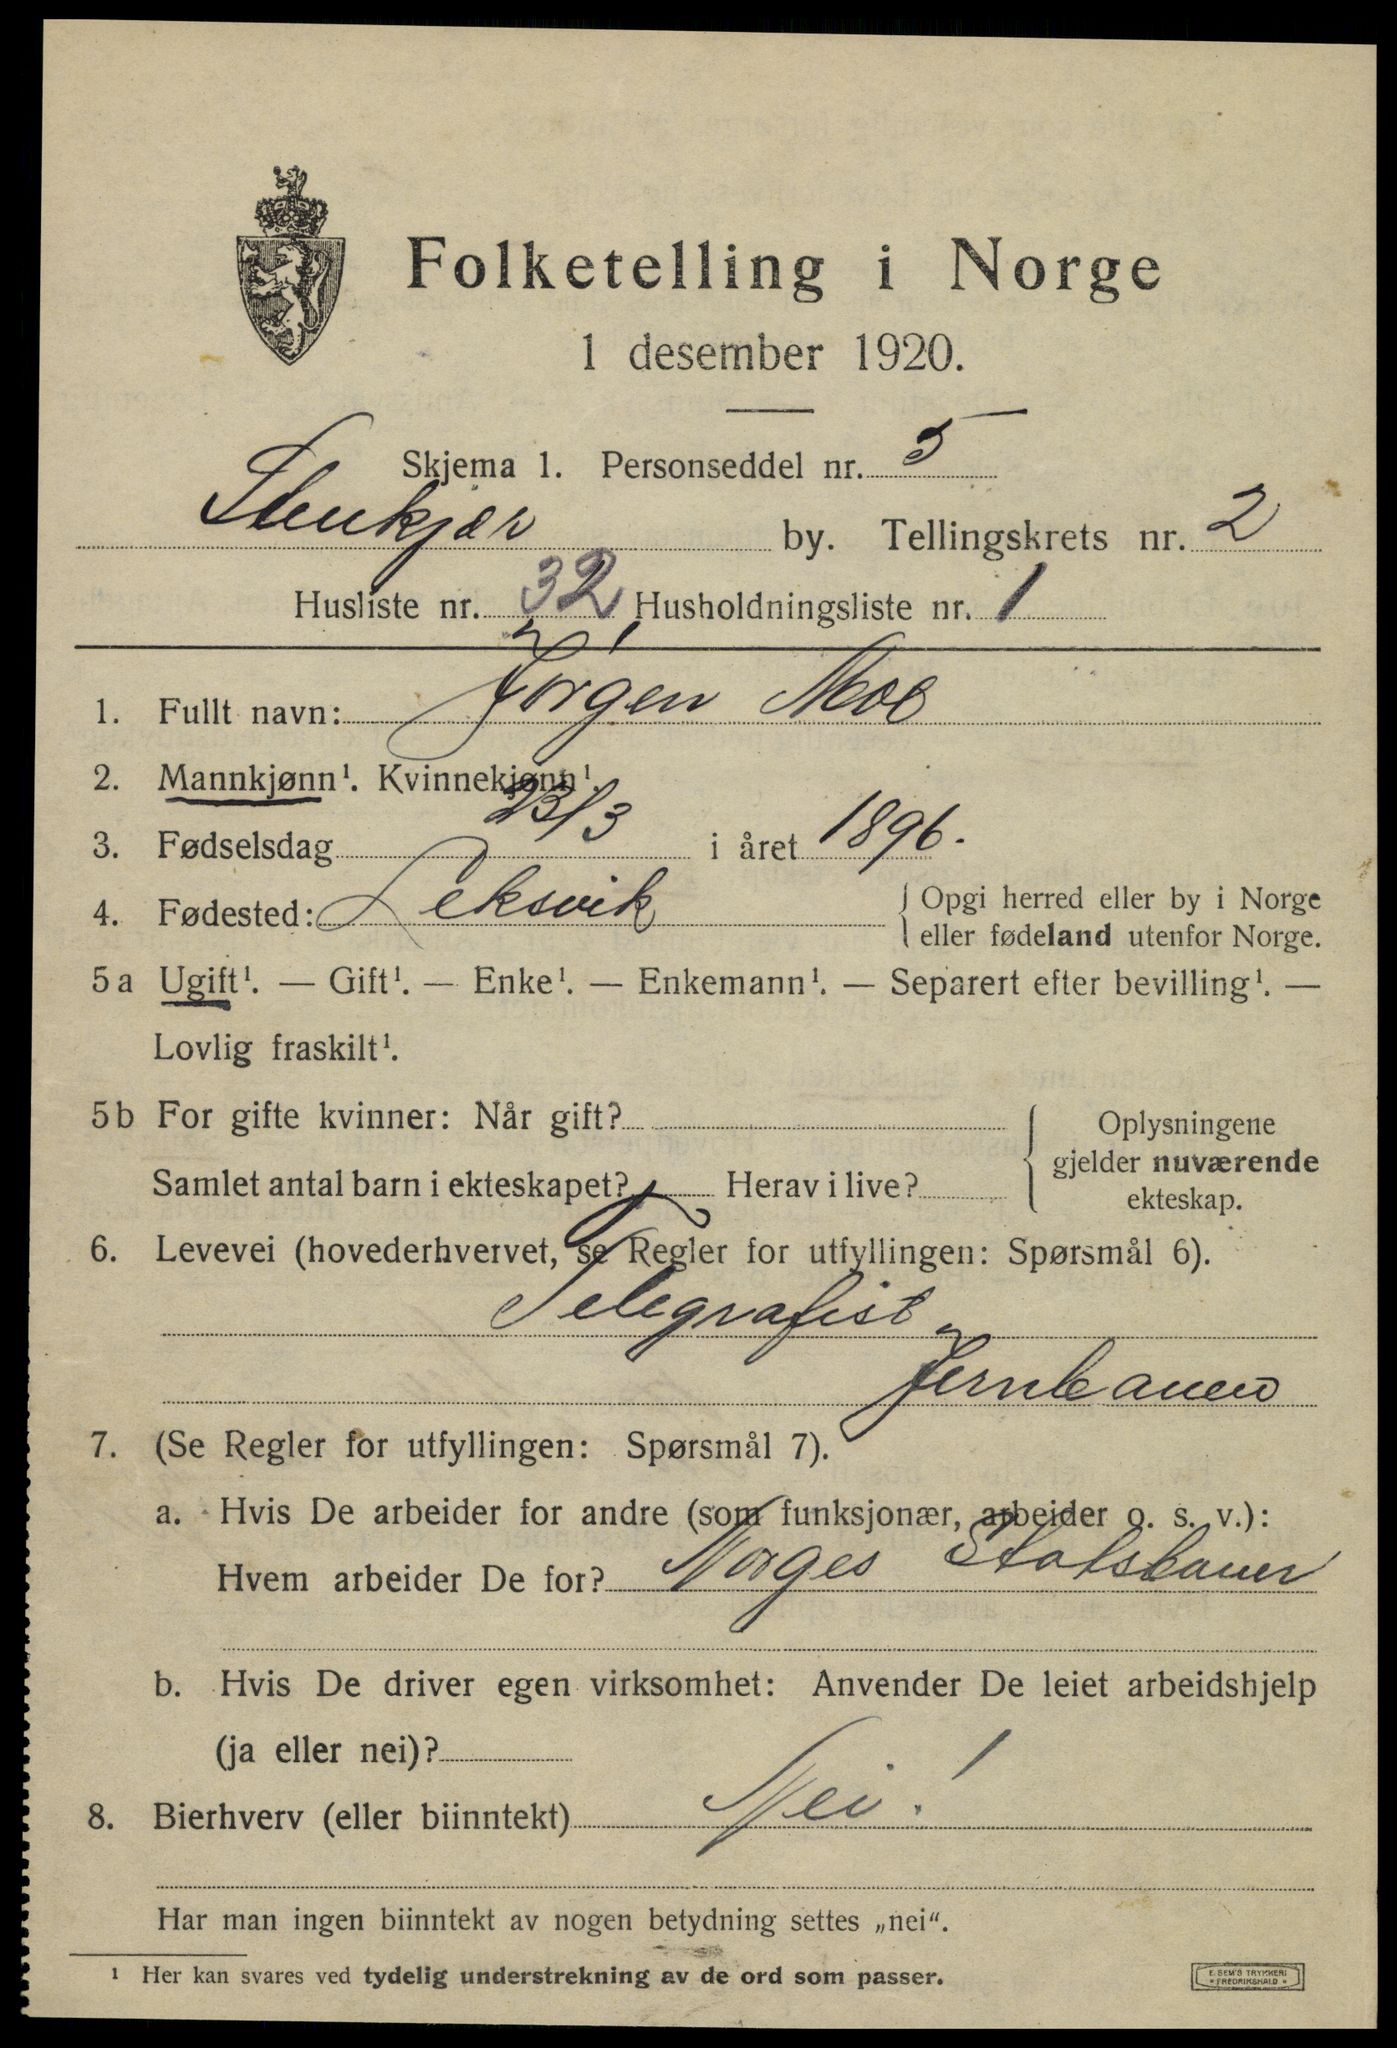 Folketelling i Norge
1 desember 1920.
Skjema 1. Personseddel nr. 5
Stenkjær by. Tellingskrets nr. 2
Husliste nr. 32 Husholdningsliste nr. 1
1. Fullt navn: Jørgen Moe
2. Mannkjønn¹. Kvinnekjønn¹.
3. Fødselsdag 23/3 i året 1896.
4. Fødested: Leksvik { Opgi herred eller by i Norge
eller fødeland utenfor Norge.
5a Ugift¹. — Gift¹. — Enke¹. — Enkemann¹. — Separert efter bevilling¹. —
Lovlig fraskilt¹.
5b For gifte kvinner: Når gift? { Oplysningene
gjelder nuværende
ekteskap.
Samlet antal barn i ekteskapet? Herav i live?
6. Levevei (hovederhvervet, se Regler for utfyllingen: Spørsmål 6).
Telegrafist
Jernbanen
7. (Se Regler for utfyllingen: Spørsmål 7).
a. Hvis De arbeider for andre (som funksjonær, arbeider o. s. v.):
Hvem arbeider De for? Norges Statsbaner
b. Hvis De driver egen virksomhet: Anvender De leiet arbeidshjelp
(ja eller nei)?
8. Bierhverv (eller biinntekt) Nei!
Har man ingen biinntekt av nogen betydning settes „nei“.
¹ Her kan svares ved tydelig understrekning av de ord som passer.
E. SEM'S TRYKKERI
FREDRIKSHALD